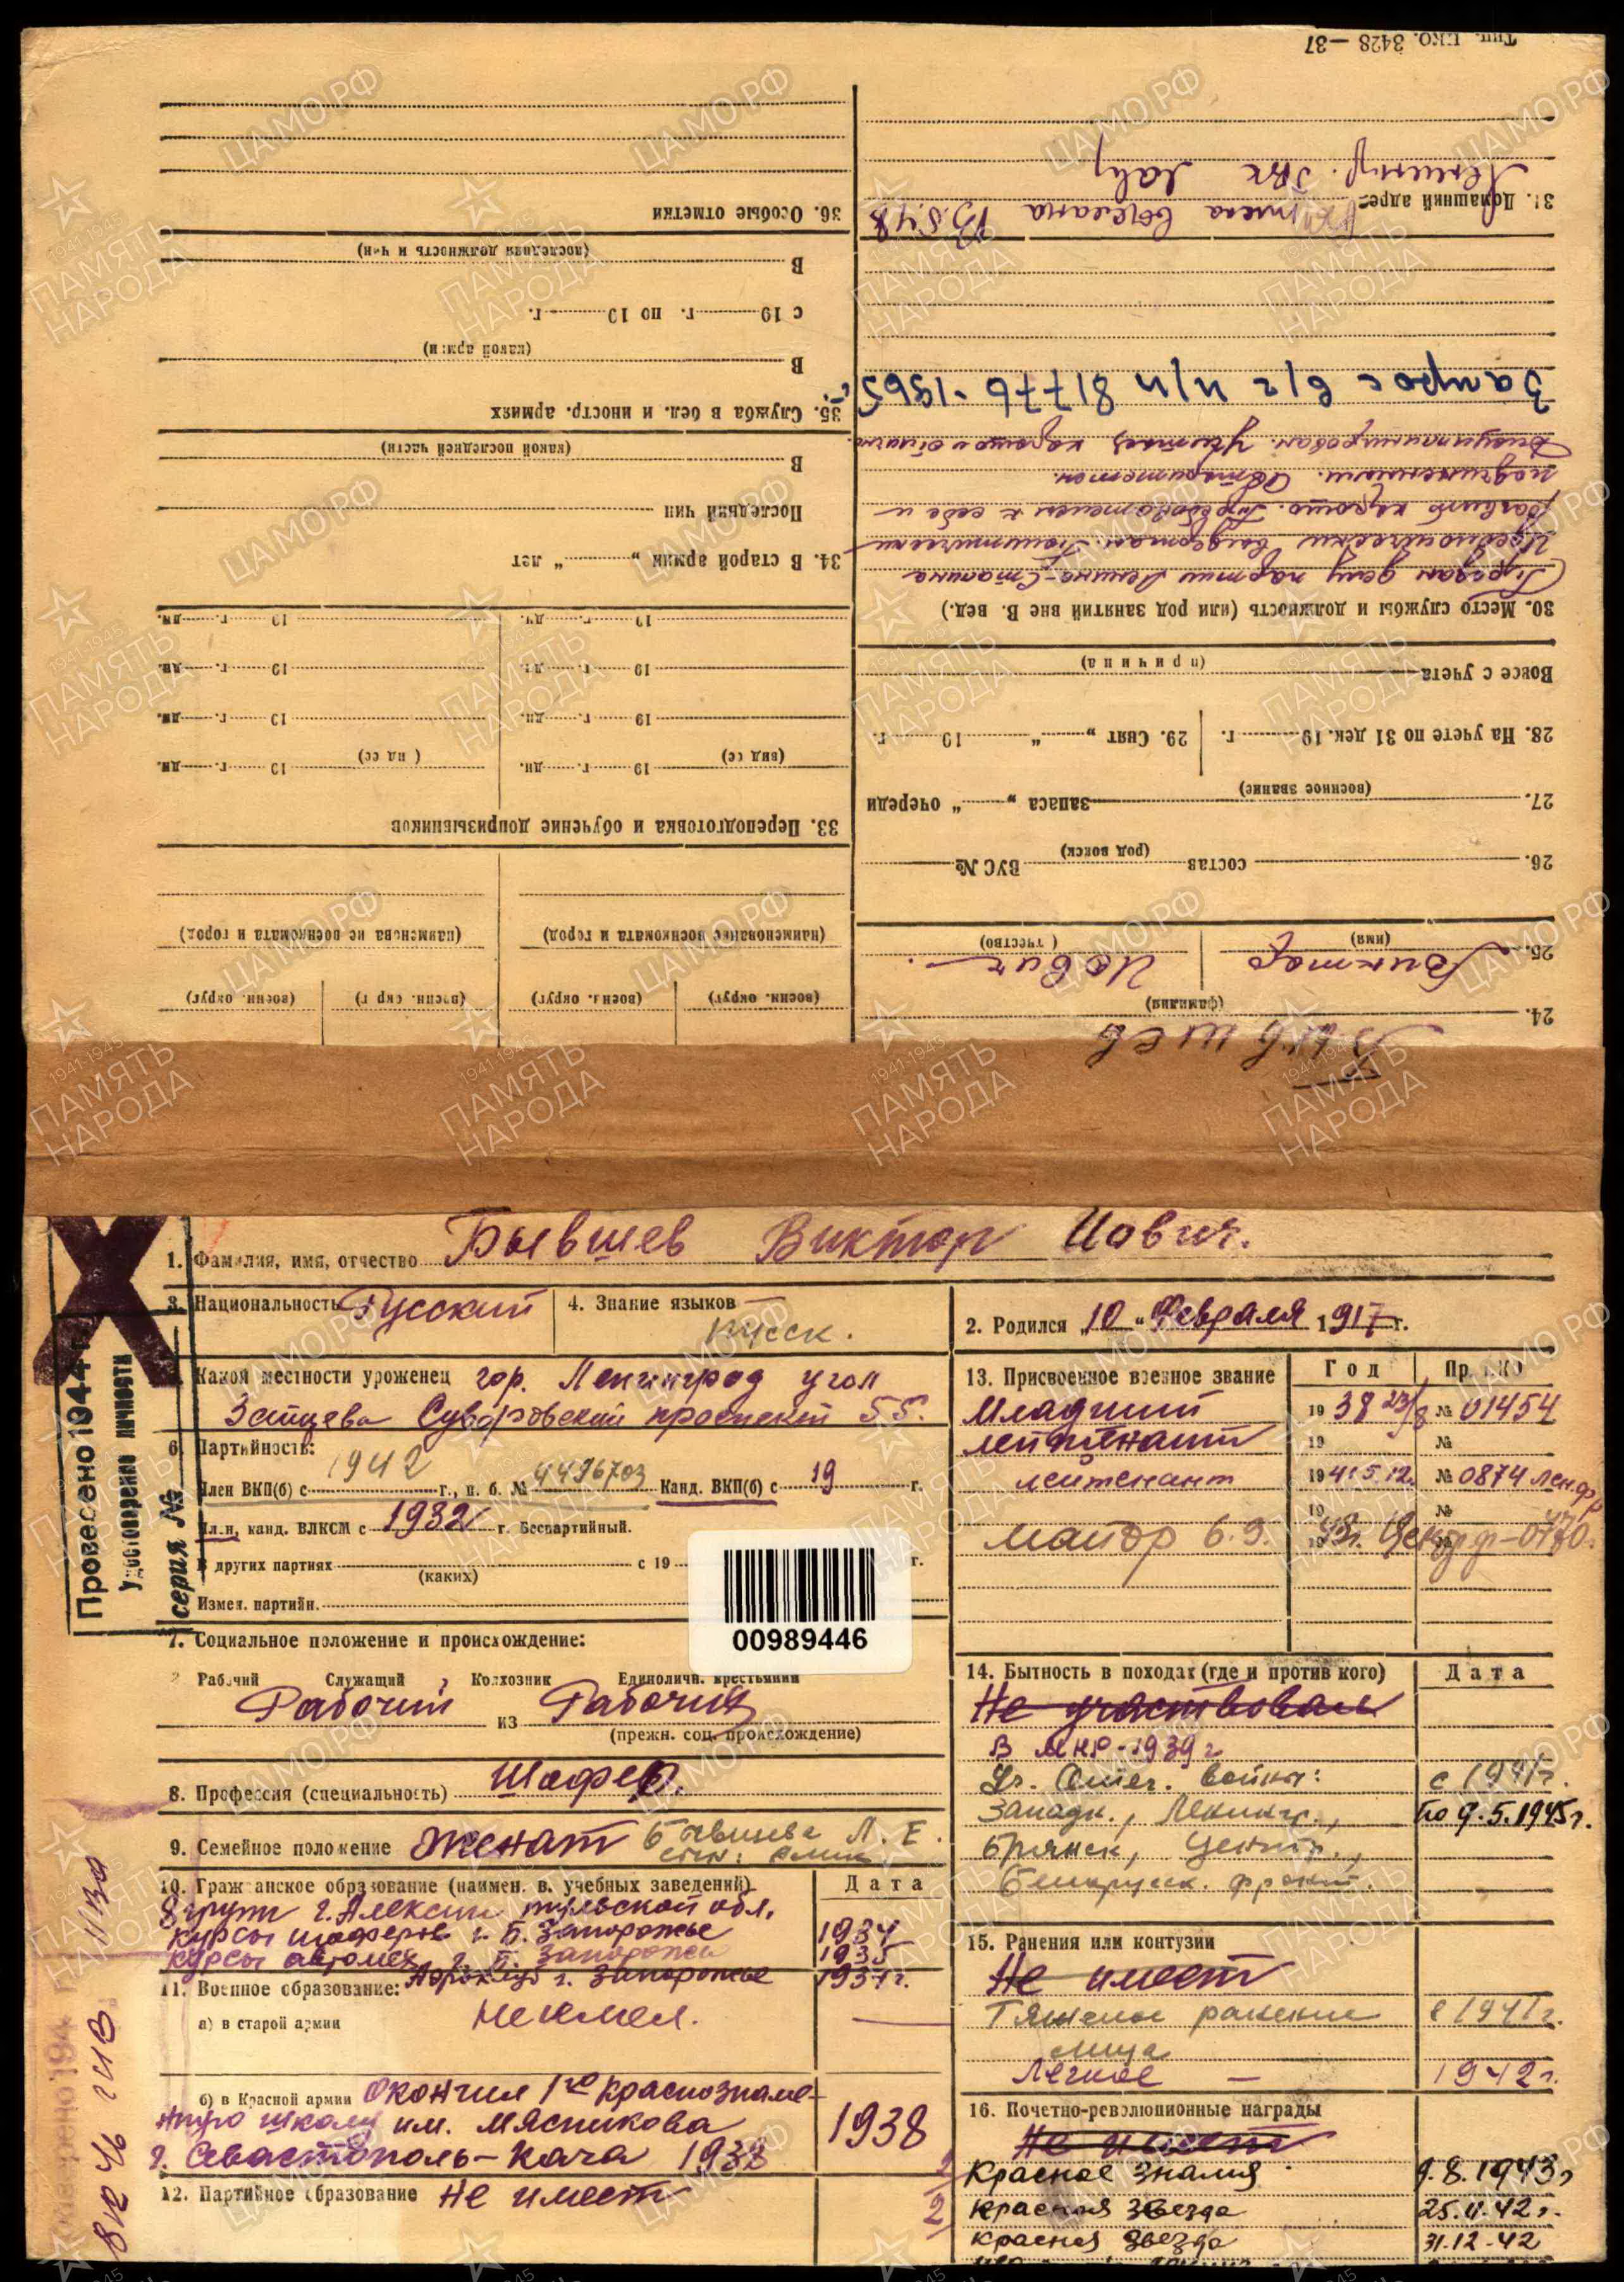 Тип. НКО. 3428 — 37
24. Бывшев
(фамилия)
25. Виктор Иович.
(имя) (отчество)
26. состав ВУС №
(род войск)
27. запаса „ “ очереди
(военное звание)
28. На учете по 31 дек. 19 г. 29. Снят „ “ 19 г.
Вовсе с учета
(причина)
30. Место службы и должность (или род занятий вне В. вед.)
Предан делу партии Ленина-Сталина
Идеологически выдержан. Политически
развит хорошо. Требователен к себе и
подчиненным. Авторитетен.
Дисциплинирован.
Запрос в/ч п/п 81776 - 1965
31. Домашний адрес
выслана 13.5.48
Ленингр.
(военн. округ) (военн. округ) (военн. округ) (военн. округ)
(наименование военкомата и город) (наименование военкомата и город)
33. Переподготовка и обучение допризывников
(вид сс) 19 г. дн. (вид сс) 19 г. дн.
19 г. дн. 19 г. дн.
19 г. дн. 19 г. дн.
19 г. дн. 19 г. дн.
34. В старой армии „ “ лет
Последний чин
В
(какой последней части)
35. Служба в бел. и иностр. армиях
В
(какой армии)
с 19 г. по 19 г.
В
(последняя должность и чин)
36. Особые отметки
Проверено 1944 г.
Удостоверение личности
серия №
1. Фамилия, имя, отчество Бывшев Виктор Иович.
3. Национальность Русский
4. Знание языков
русск.
2. Родился „10“ Февраля 1917 г.
Какой местности уроженец гор. Ленинград угол
Зайцева Суворовский проспект 55.
6. Партийность:
Член ВКП(б) с 1942 г., п. б. № 4496703 Канд. ВКП(б) с 19 г.
Член, канд. ВЛКСМ с 1932 г. Беспартийный.
В других партиях с 19 г.
(каких)
Измен. партийн.
00989446
7. Социальное положение и происхождение:
Рабочий Служащий Колхозник Единоличн. крестьянин
Рабочий из Рабочих
(прежн. соц. происхождение)
8. Профессия (специальность) Шофер.
9. Семейное положение женат Бывшева Л. Е.
10. Гражданское образование (наимен. в. учебных заведений) Дата
8 групп г. Алексин тульской обл.
курсы шоферов г. Б. Запорожье 1934
курсы автомех. г. Б. Запорожье 1935
Аэроклуб г. Запорожье 1937 г.
11. Военное образование:
а) в старой армии Не имел.
б) в Красной армии окончил 1ю краснознаме-
нную школу им. Мясникова
г. Севастополь - Кача 1938 1938
12. Партийное образование Не имеет
13. Присвоенное военное звание Год Пр. НКО
Младший 1938 № 01454
лейтенант 19 №
лейтенант 1941 5.12. № 0874 Лен. фр
19 №
майор 6.9. 43 г. Центр ф - 0770.
14. Бытность в походах (где и против кого) Дата
Не участвовал
В МНР - 1939 г
Уч. Отеч. войны: с 1941 г.
Западн., Ленингр., по 9.5.1945 г.
Брянск, Центр.,
Белорусск. фронт.
15. Ранения или контузии
Не имеет
Тяжелое ранение в 1941 г.
лица
Легкое — 1942 г.
16. Почетно-революционные награды
Не имеет
Красное знамя 9.8.1943 г
Красная звезда
Красная звезда 31.12-42
ЦАМО.РФ
1941-1945
ПАМЯТЬ
НАРОДА